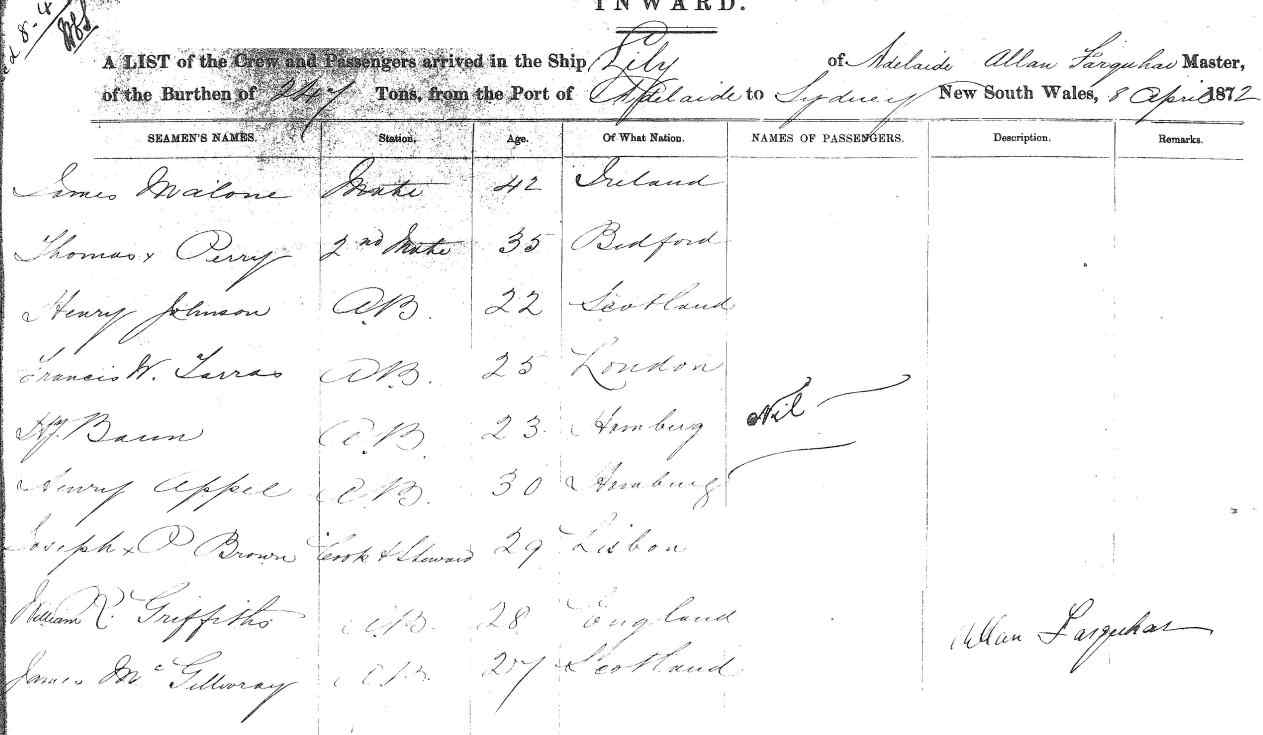 INWARD.
A LIST of the Crew and Passengers arrived in the Ship Lily of Adelaide Allan Farquhar Master,
of the Burthen of 247 Tons, from the Port of Adelaide to Sydney New South Wales, 8 April 1872
SEAMEN'S NAMES. Station. Age. Of What Nation. NAMES OF PASSENGERS. Description. Remarks.
James Malone Mate 42 Ireland
Thomas x Perry 2nd Mate 35 Bedford
Henry Johnson A.B. 22 Scotland
Francis W. Tarras A.B. 25 London
Baun A.B. 23 Hamburg Nil
Henry Appel A.B. 30 Hamburg
Joseph x P Brown Cook & Steward 29 Lisbon
William R. Griffiths A.B. 28 England
Allan Farquhar
James Mc Gillivray A.B. 27 Scotland